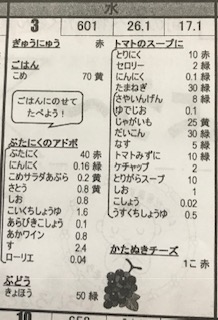 水
3 601 26.1 17.1
ぎゅうにゅう 赤
ごはん
こめ 70 黄
ごはんにのせて
たべよう!
ぶたにくのアドボ
ぶたにく 40 赤
にんにく 0.16 緑
こめサラダあぶら 0.2 黄
さとう 0.8 黄
しお 0.8
こいくちしょうゆ 1.6
あらびきこしょう 0.1
あかワイン 0.8
す 2.4
ローリエ 0.04
ぶどう
きょほう 50 緑
トマトのスープに
とりにく 10 赤
セロリー 2 緑
にんにく 0.1 緑
たまねぎ 30 緑
さやいんげん 8 緑
ゆでじお 0.1
じゃがいも 25 黄
だいこん 30 緑
なす 5 緑
トマトみずに 10 緑
ケチャップ 2
とりがらスープ 10
しお
こしょう 0.02
うすくちしょうゆ 0.5
かたぬきチーズ
1こ 赤
10